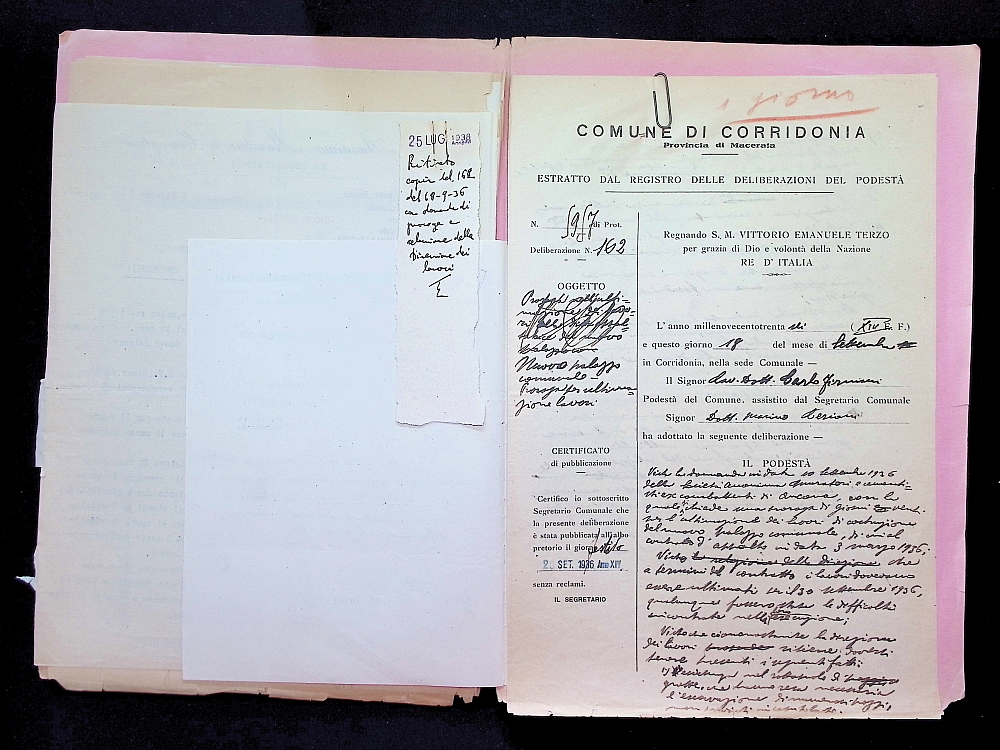 25 LUG 1938
Ritirato
copia del 162
del 18-9-36
con domanda di
proroga e
relazione della
Direzione dei
lavori
1 giorno
COMUNE DI CORRIDONIA
Provincia di Macerata
ESTRATTO DAL REGISTRO DELLE DELIBERAZIONI DEL PODESTÀ
N. 5957 di Prot.
Deliberazione N. 162
OGGETTO
Nuovo palazzo
comunale
Proroga per ultima-
zione lavori
CERTIFICATO
di pubblicazione
Certifico io sottoscritto
Segretario Comunale che
la presente deliberazione
è stata pubblicata all'albo
pretorio il giorno festivo
2 SET. 1936 Anno XIV
senza reclami.
IL SEGRETARIO
Regnando S. M. VITTORIO EMANUELE TERZO
per grazia di Dio e volontà della Nazione
RE D'ITALIA
L'anno millenovecentotrenta sei (XIV E. F.)
e questo giorno 18 del mese di Settembre
in Corridonia, nella sede Comunale —
Il Signor Cav. Dott. Carlo Firmani
Podestà del Comune, assistito dal Segretario Comunale
Signor Dott. Marino
ha adottato la seguente deliberazione —
IL PODESTÀ
Vista la domanda in data 10 settembre 1936
della Società Anonima Muratori e cementi-
sti ex combattenti di Ancona, con la
quale chiede una proroga di giorni venti
per l'ultimazione dei lavori di costruzione
del nuovo palazzo comunale, di cui al
contratto d'appalto in data 3 marzo 1936;
Visto che
a termini del contratto i lavori dovevano
essere ultimati il 30 settembre 1936,
qualunque fossero state le difficoltà
incontrate nella esecuzione;
Visto che ciononostante la direzione
dei lavori ritiene doversi
tenere presenti i seguenti fatti:
1) nel sottosuolo di
grotte, che hanno resa necessaria
l'escavazione di